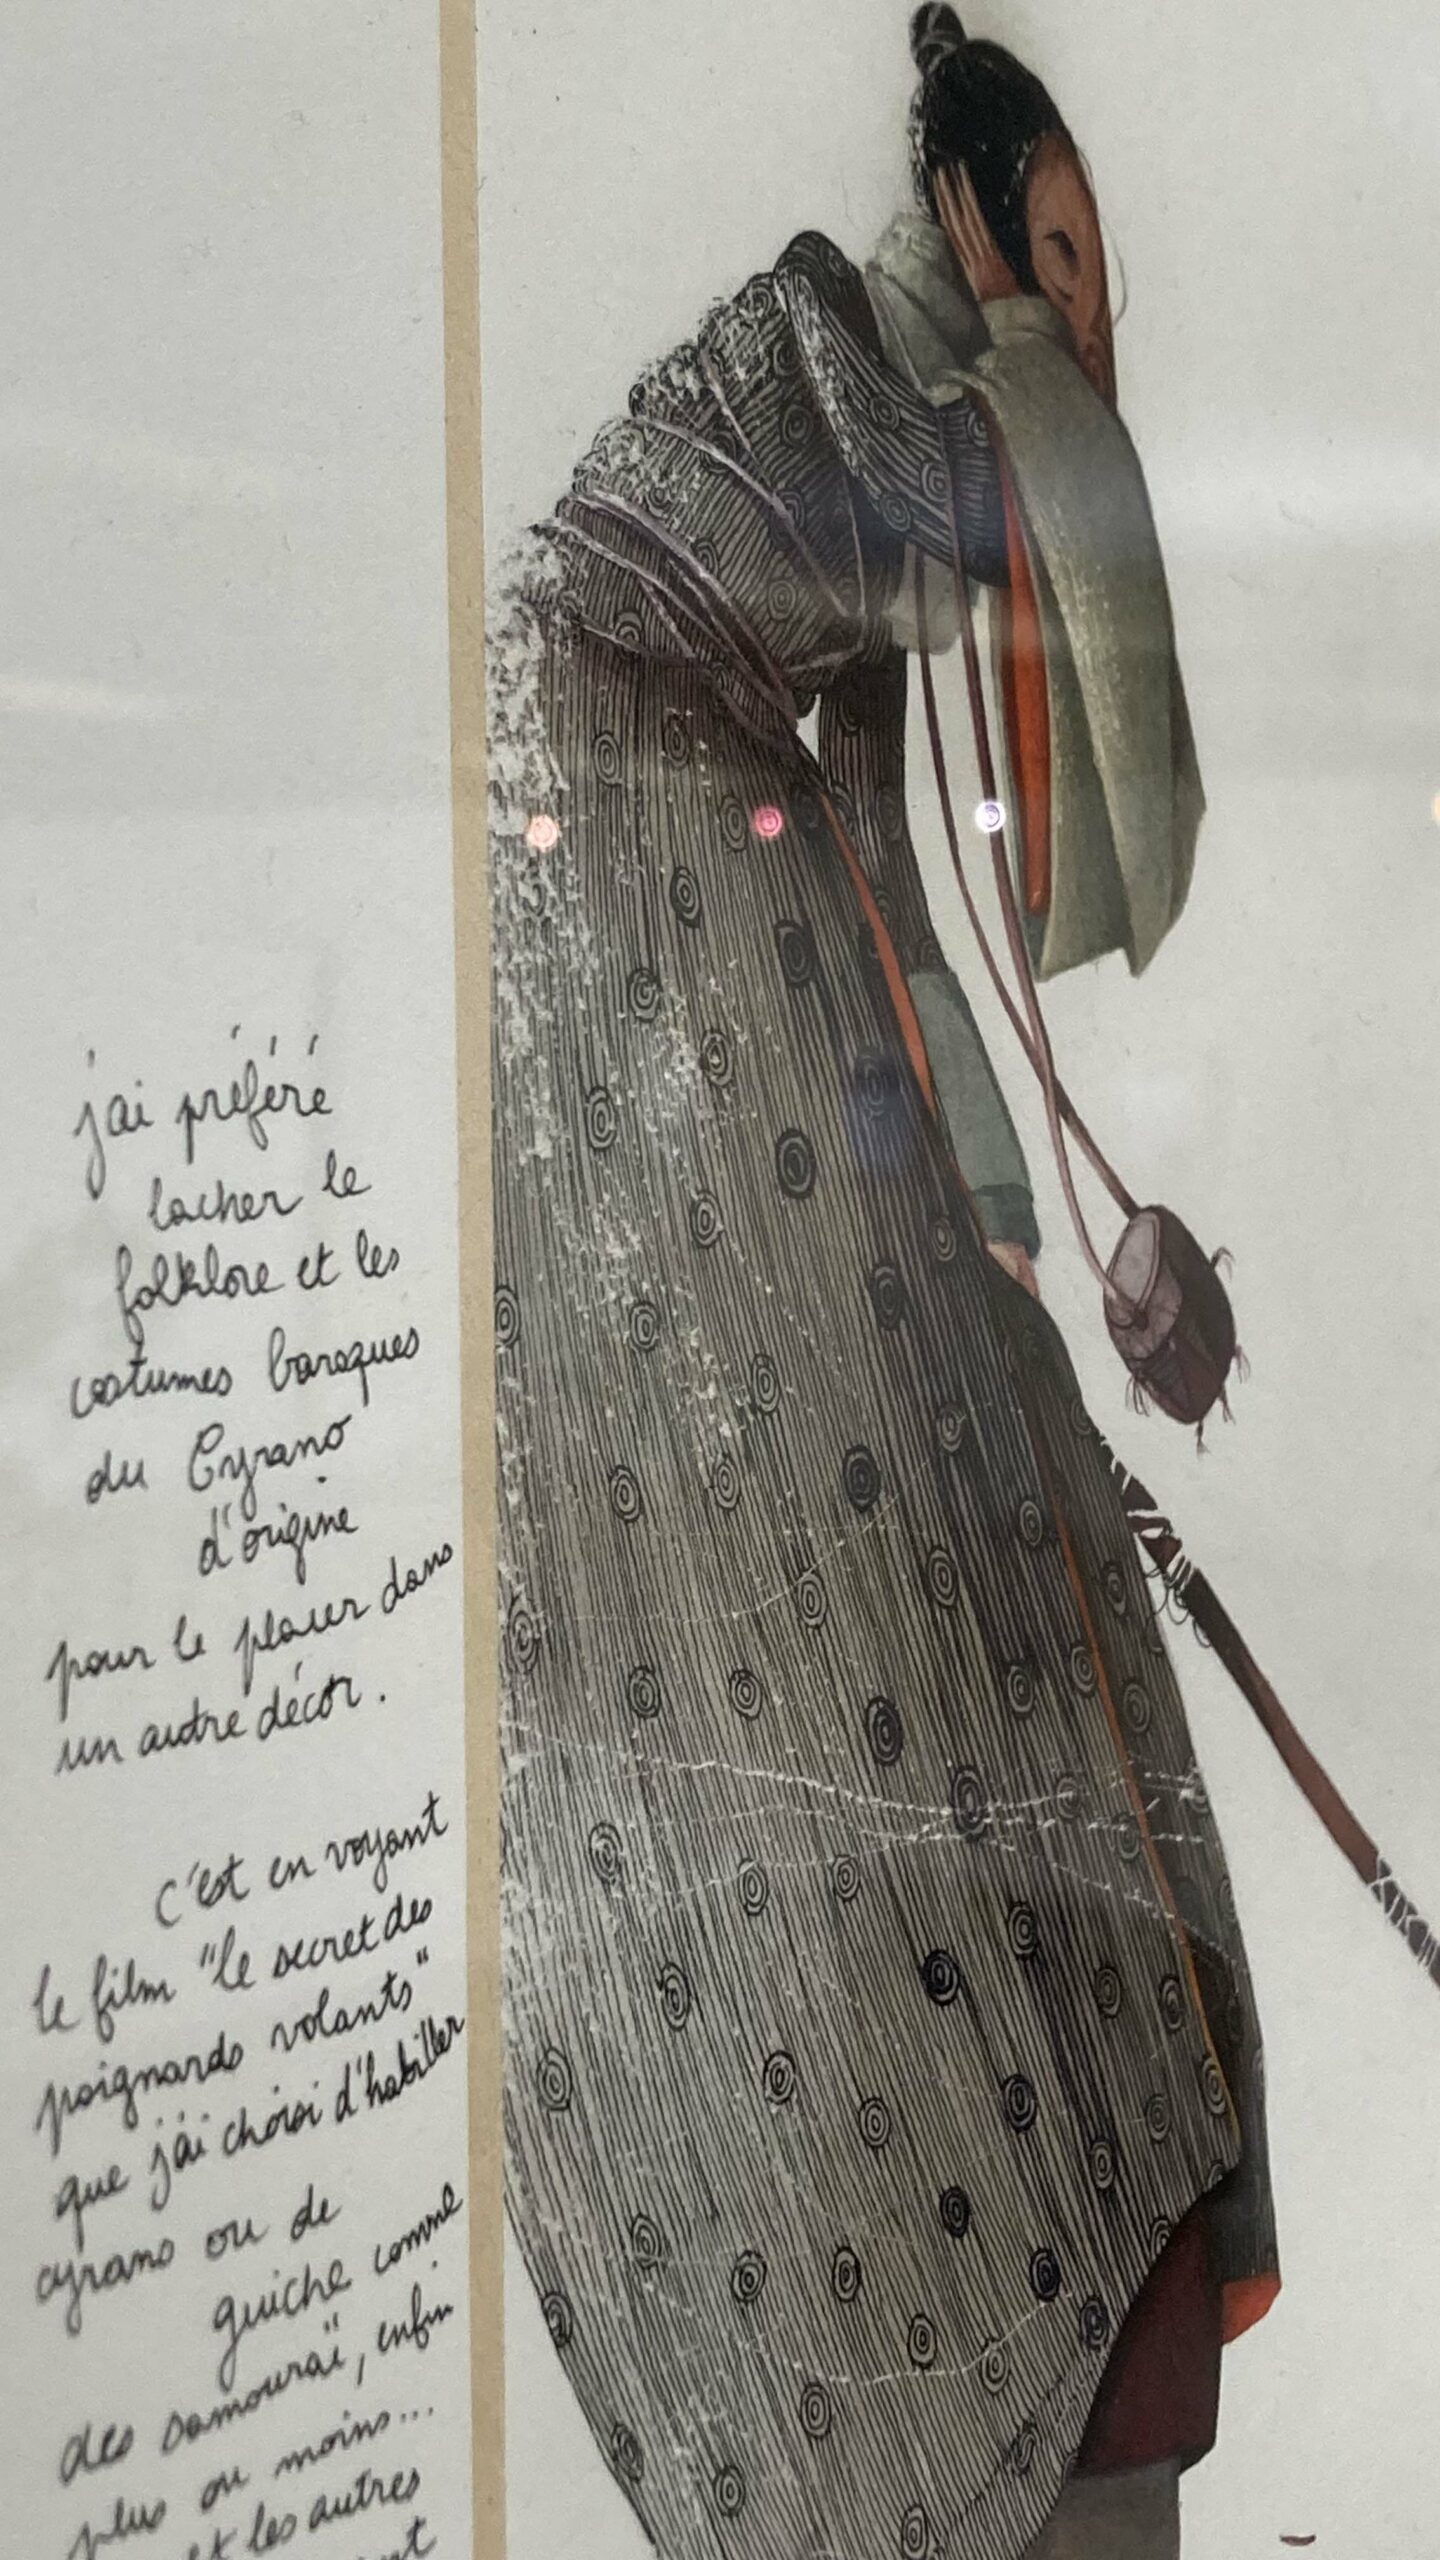 j'ai préféré
lacher le
folklore et les
costumes baroques
du Cyrano
d'origine
pour le placer dans
un autre décor.
c'est en voyant
le film "le secret des
poignards volants"
que j'ai choisi d'habiller
cyrano ou de
guiche comme
des samouraï, enfin
plus ou moins...
et les autres